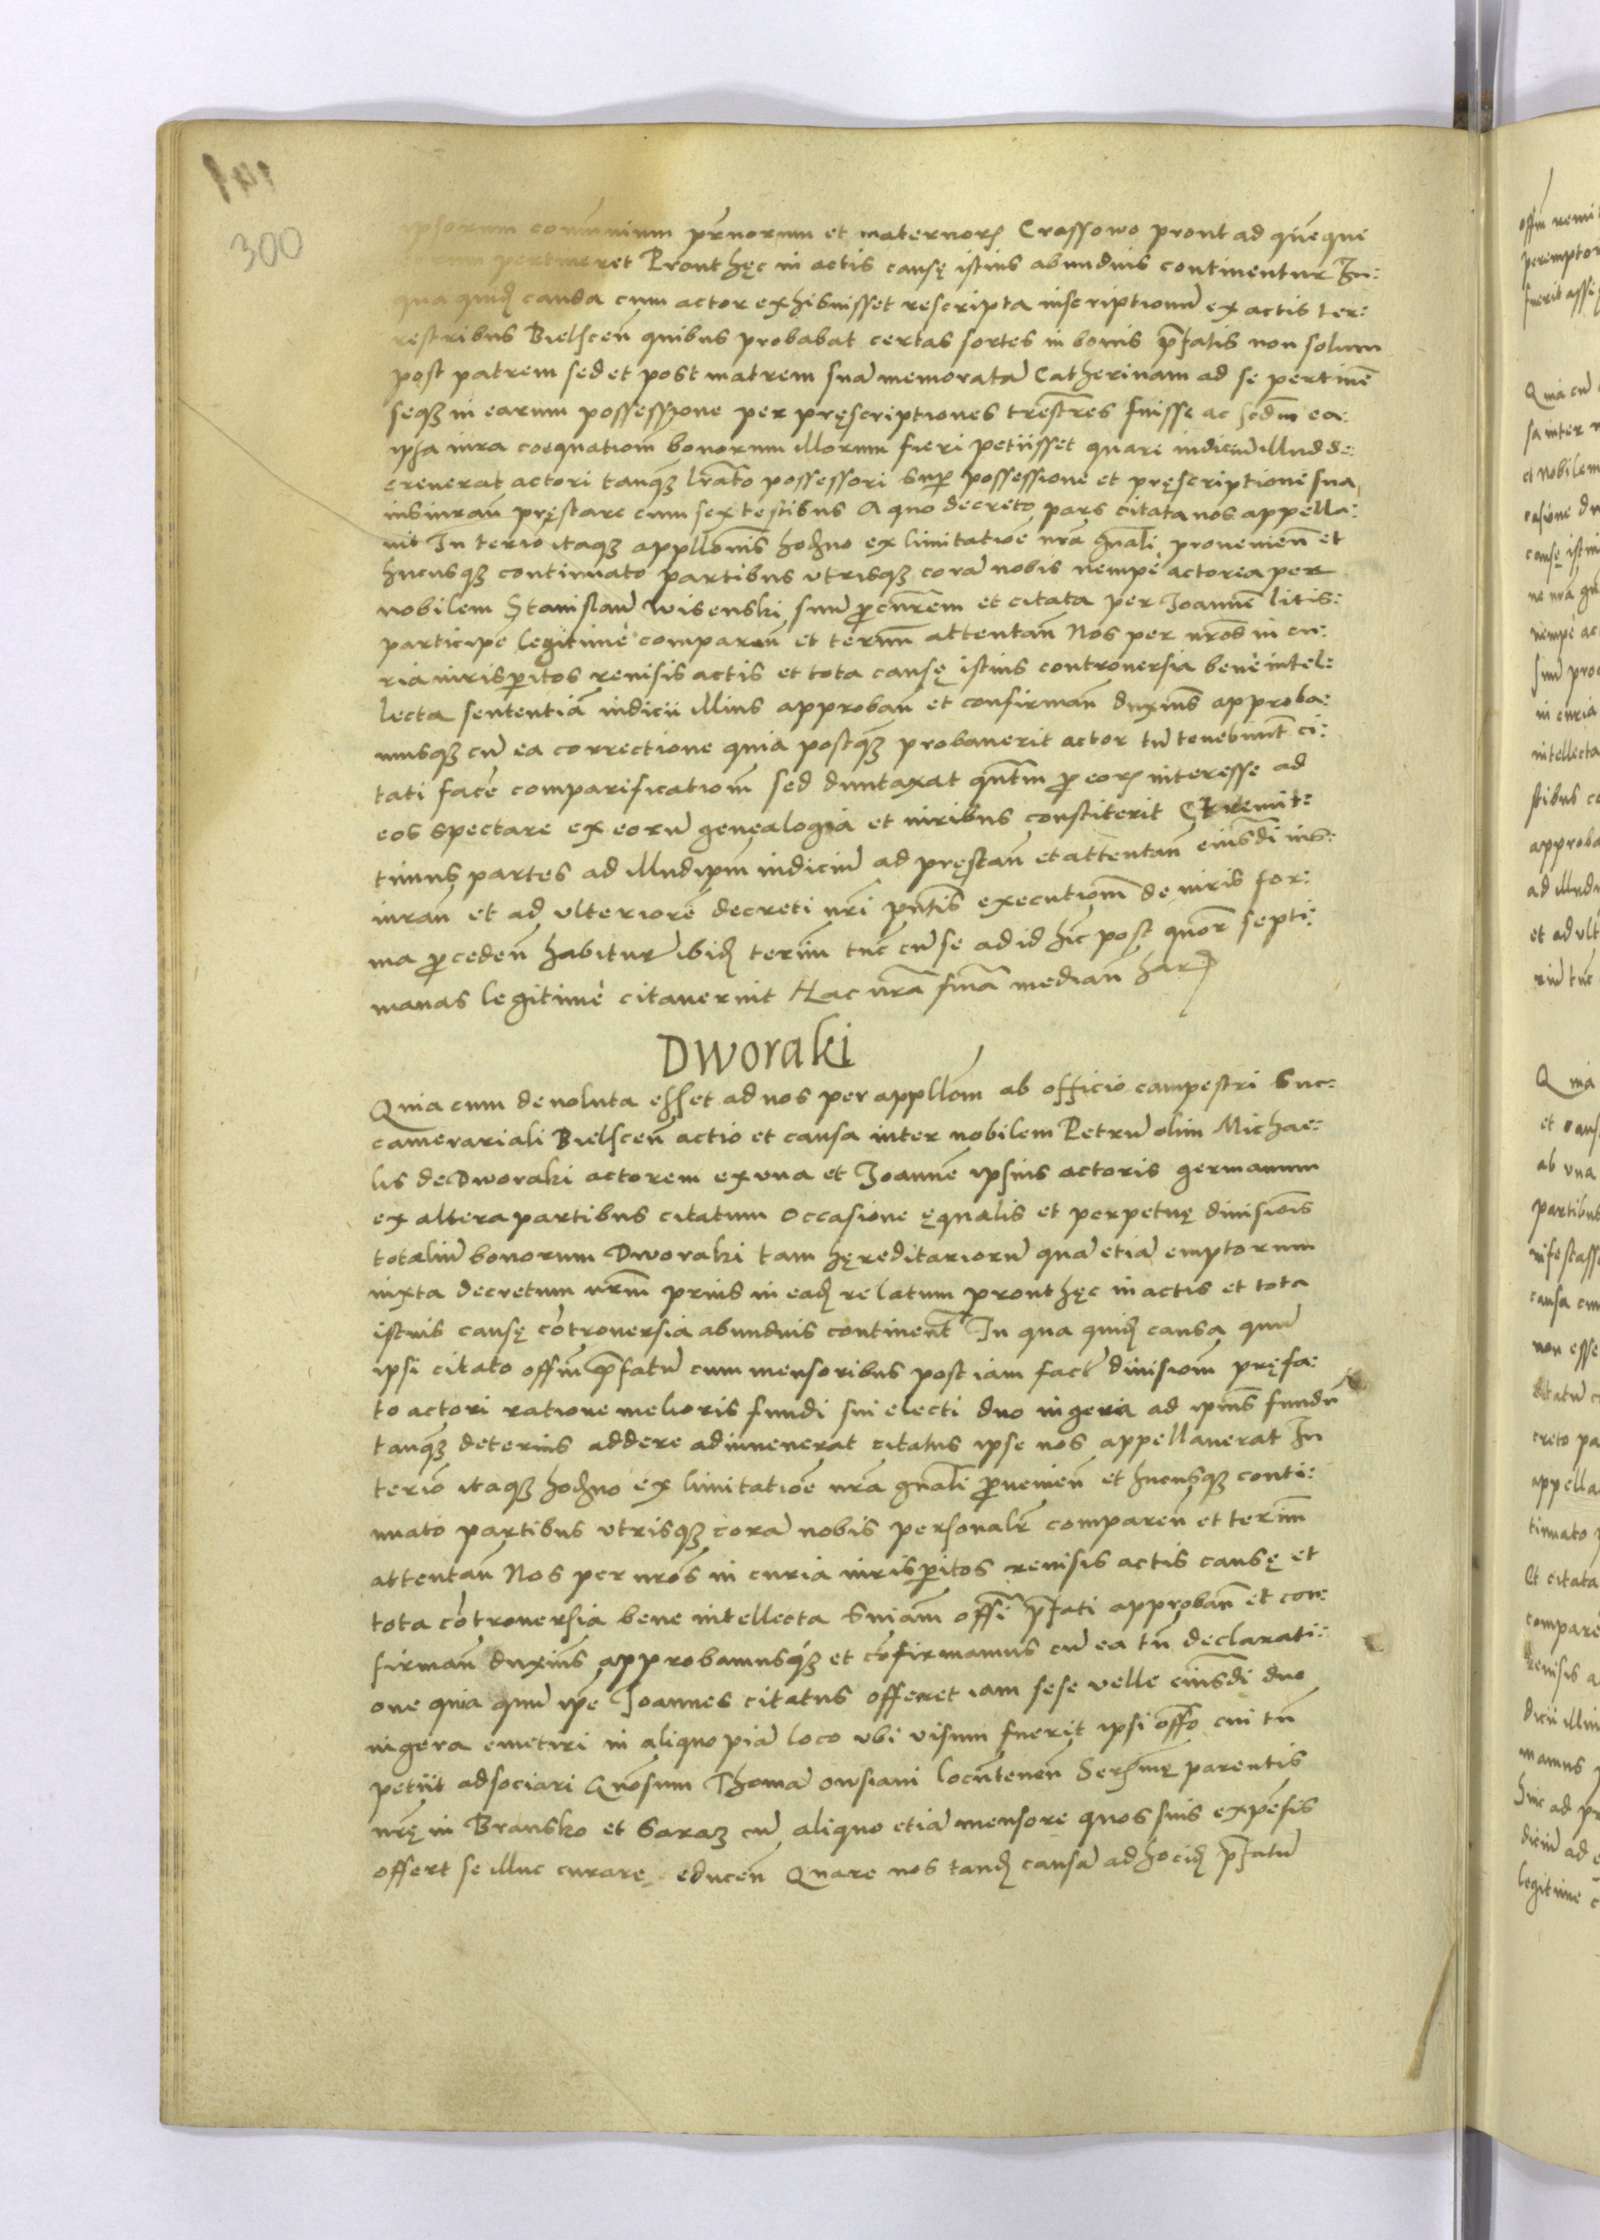 300
ipsorum com̃unium pr̃norum et maternorꝝ Crassowo prout ad quẽque
pertineret Prout hęc in actis causę istius abundius continentur In:
qua quidẽ causa cum actor exhibuisset rescripta inscriptionũ ex actis ter:
restribus Bielscen̄ quibus probabat certas sortes in bonis p̃fatis non solum
post patrem sed et post matrem suã memoratã Catherinam ad se pertinẽ
seqꝫ in earum possessione per pręscriptiones trẽstres fuisse ac scdm̃ ea
ipsa iura coequationẽ bonorum illorum fieri petiisset quare iudiciũ illud de:
creuerat actori tanqꝫ l̃rato possessori sup̱ possessione et pręscriptione sua
iusiuran̄ pręstare cum sex testibus A quo decreto pars citata nos appella:
uit In terĩo itaqꝫ appll̃onis hodño ex limitatiõe nr̃a gñali prouenien̄ et
hucusqꝫ continuato partibus vtrisqꝫ corã nobis nempe actorea per
nobilem Stanislaũ Wisenski suũ ꝓcur̃rem et citata per Joannẽ litis:
participẽ legitimè comparen̄ et termĩ attentan̄ Nos per nr̃os in cu:
ria iurisp̱itos reuisis actis et tota causę istius controuersia benè intel:
lecta sententiã iudicii illius approban̄ et confirman̄ duximꝰ approba:
musqꝫ cũ ea correctione quia postqꝫ probauerit actor tũ tenebunt̃ ci:
tati facẽ comparificationẽ sed duntaxat qñtm̃ ꝓ eorꝝ interesse ad
eos spectare ex eorũ genealogia et iuribus constiterit Et remit:
timus partes ad illud ipm̃ iudiciũ ad pręstan̄ et attentan̄ eiusdĩ ius:
iuran̄ et ad vlteriorẽ decreti nr̃i pñtis executionẽ de iuris for:
ma ꝓceden̄ habitur̃ ibidẽ termĩ tũc cũ se ad id hĩc post quor̃ septi:
manas legitimè citauerint Hac nr̃a sñia median̄ harꝝ
Dworaki
Quia cum deuoluta esset ad nos per appll̃om ab officio campestri Suc:
camerariali Bielscen̄ actio et causa inter nobilem Petrũ olim Michae:
lis de Dworaki actorem ex vna et Joannẽ ipsius actoris germanum
ex altera partibus citatum occasione ęqualis et perpetuę diuisiõis
totaliũ bonorum Dworaki tam hęreditariorũ quã etiã emptorum
iuxta decretum nr̃m prius in eadẽ relatum prout hęc in actis et tota
istius causę cõtrouersia abundius continent̃ In qua quidẽ causa quũ
ipsi citato offiũ p̃fatũ cum mensoribus post iam factã diuisionẽ pręfa:
to actori ratione melioris fundi sui electi duo iugera ad ipius fundũ
tanqꝫ deterius addere adiuuenerat citatus ipse nos appellauerat In
terĩo itaqꝫ hodño ex limitatiõe nr̃a gñali ꝓuenien̄ et hucusqꝫ conti:
nuato partibus vtrisqꝫ corã nobis personalr̃ comparen̄ et termĩ
attentan̄ Nos per nr̃os in curia iurisp̱itos reuisis actis causę et
tota cõtrouersia bene intellecta sñiam offĩ p̃fati approban̄ et con:
firman̄ duximꝰ approbamusqꝫ et cõfirmamus cũ ea tñ declarati:
one quia quũ ipe Joannes citatus offeret iam sese velle eiusdĩ duo
iugera emetiri in aliquo piã loco vbi visum fuerit ipsi offo cui tñ
petiit adsociari Gñosum Thomã owsiani locũtenen̄ Serẽmę parentis
nr̃ę in Bransko et Saraz cũ aliquo etiã mensore quos suis expẽsis
offert se illuc curare educen̄ Quare nos tandẽ causã ad hoc idẽ p̃fatũ